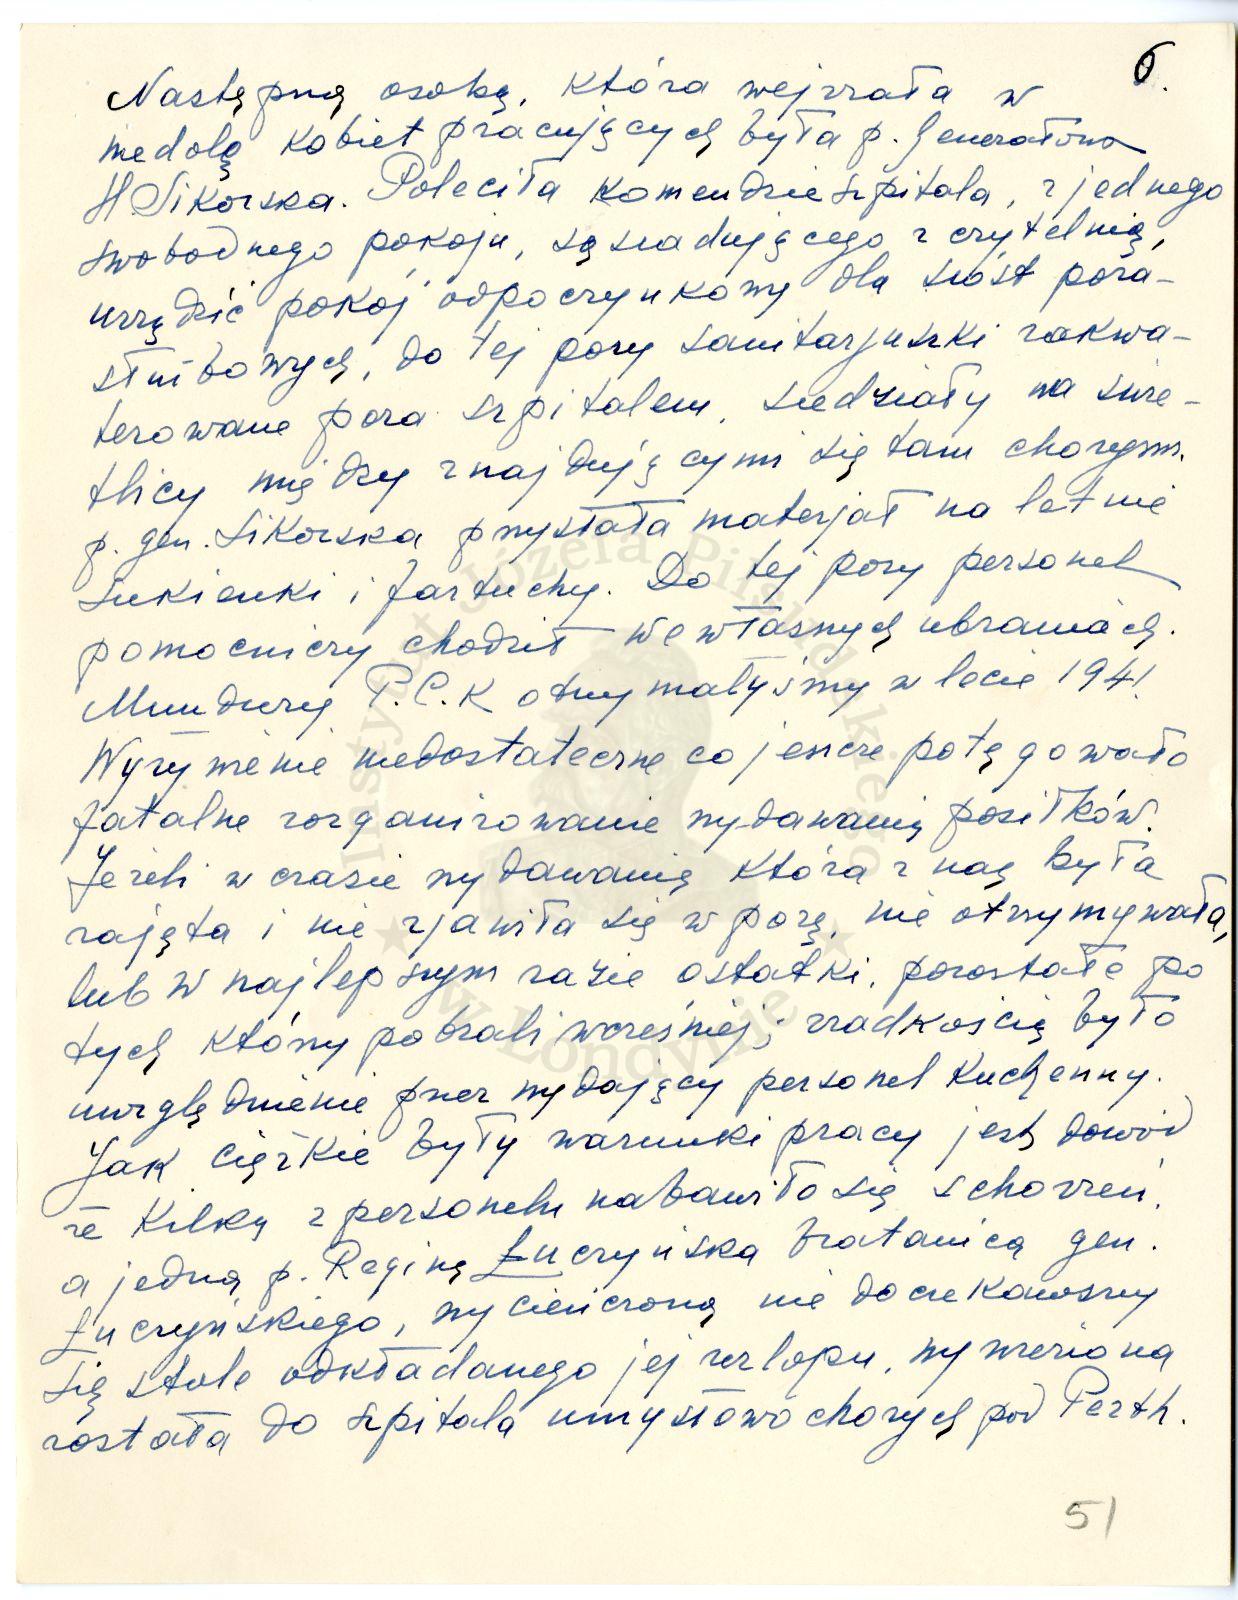 6.
Następną osobą, która wejrzała w
niedolę kobiet pracujących była p. Generałowa
H Sikorska. Poleciła komendzie szpitala, z jednego
swobodnego pokoju, sąsiadującego z czytelnią,
urządzić pokój odpoczynkowy dla sióst poza-
służbowych, do tej pory sanitarjuszki zakwa-
terowane poza szpitalem, siedziały na świe-
tlicy między znajdującymi się tam chorym.
p. gen. Sikorska przysłała materjał na letnie
sukienki i fartuchy. Do tej pory personel
pomocniczy chodził we własnych ubraniach.
Mundury P.C.K otrzymałyśmy w lecie 1941.
Wyżywienie niedostateczne co jeszcze potęgowało
fatalne zorganizowanie wydawanią posiłków.
Jeżeli w czasie wydawanią którą z nas była
zajęta i nie zjawiła się w porę, nie otrzymywała,
lub w najlepszym razie ostatki, pozostałe po
tych którzy pobrali wcześniej; rzadkością było
uwzględnienie przez wydający personel kuchenny.
Jak ciężkie były warunki pracy jest dowód
że kilką z personelu nabawiło się schorzeń,
a jedną p. Reginę Łuczyńską bratanicą gen.
Łuczyńskiego, wycieńczoną nie doczekawszy
się stale odkładanego jej urlopu, wywieziona
została do szpitala umysłowo chorych pod Perth.
51
Instytut Józefa Piłsudskiego
★ w Londynie ★